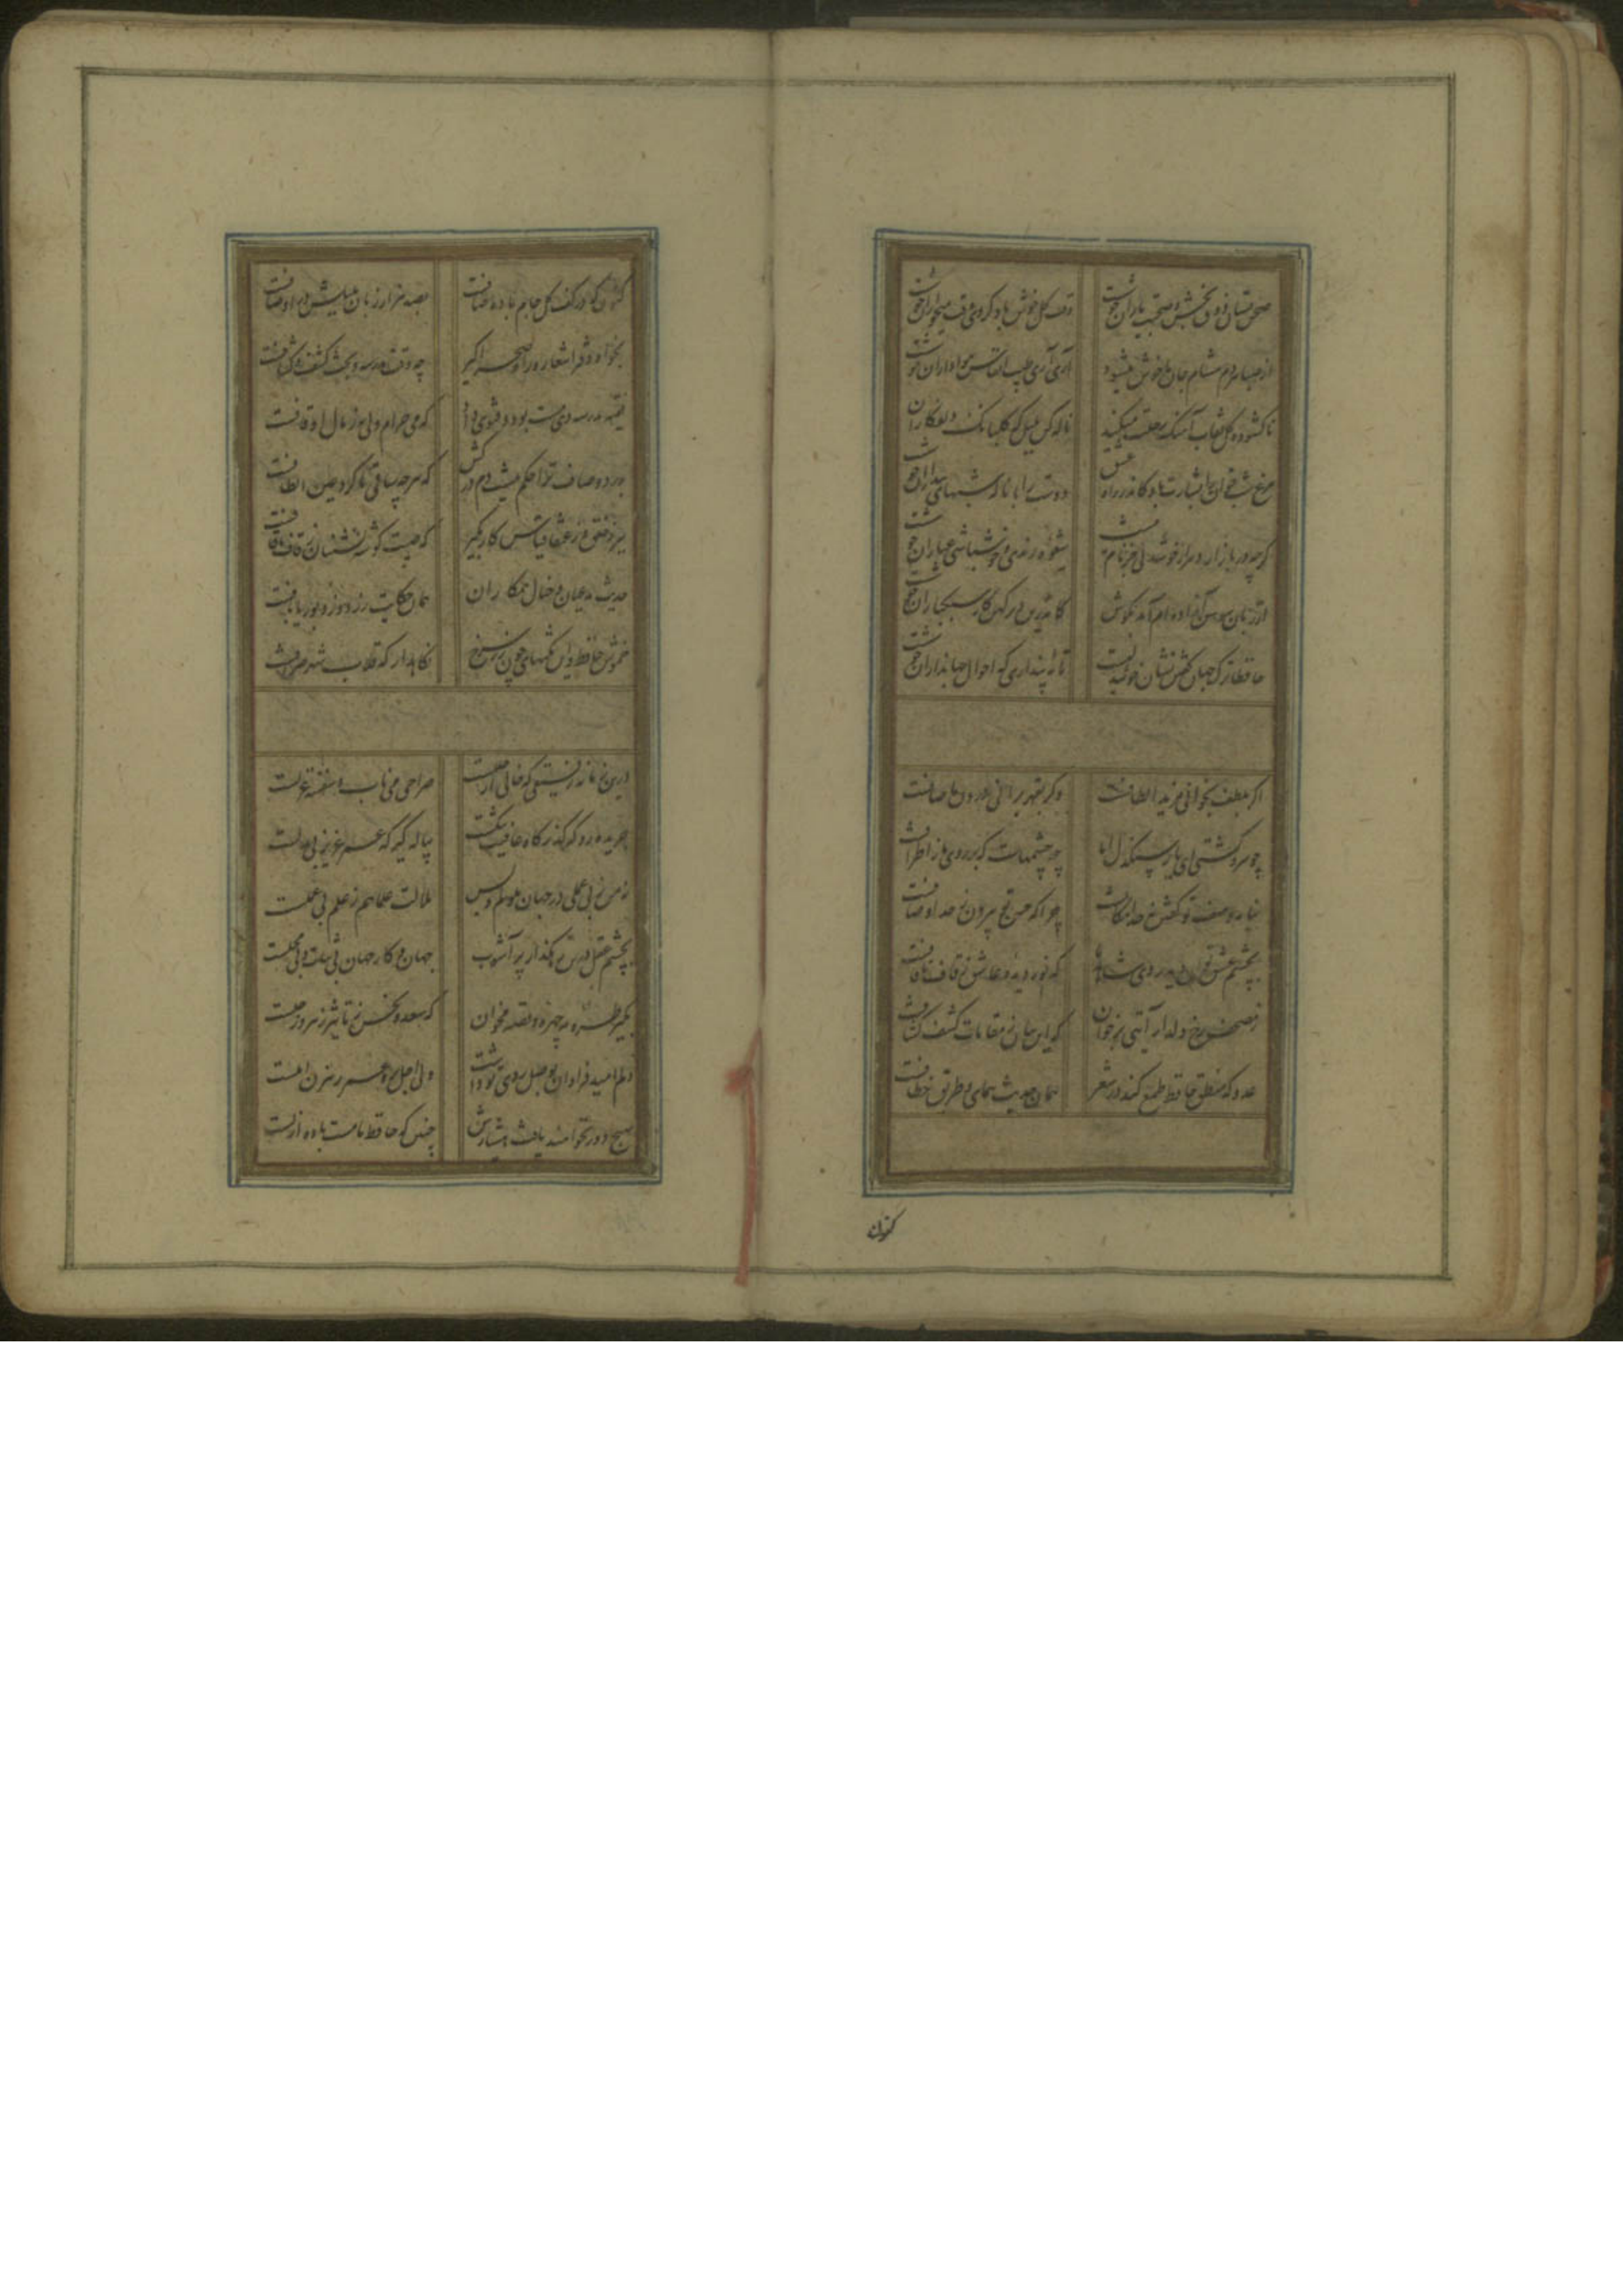 صحن بستان ذوق بخش و صحبت یاران خوشست
وقت گل خوش باد کز وی وقت میخواران خوشست
از صبا هر دم مشام جان ما خوش میشود
آری آری طیب انفاس هواداران خوشست
ناکشوده گل نقاب آهنگ رحلت میکند
ناله کن بلبل که گلبانک دلفکاران
مرغ شبخوان را بشارت باد کاندر راه عشق
دوست را با ناله شبهای بیداران خوشست
گرچه در بازار دهر از خوشدلی جز نام نیست
شیوه رندی و خوشباشی عیاران خوشست
از زبان سوسن آزاده ام آمد بگوش
کاندرین دیر کهن کار سبکباران خوشست
حافظا ترک جهان گفتن نشان خوشدلیست
تا نه پنداری که احوال جهانداران خوشست
اگر بلطف بخوانی مزید الطافست
وگر بقهر برانی درون ما صافست
چو سرو کشتی ای یار سنکدل با ما
چه چشمهاست که بر روی ما ز اطرافست
بیان وصف تو گفتن نه حد امکانست
چرا که حسن تو بیرون ز حد اوصافست
بچشم عشق توان دید روی شاهد ما
که نور دیده عاشق ز قاف تا قافست
ز مصحف رخ دلدار آیتی برخوان
که این بیان مقامات کشف کشافست
عدو که منطق حافظ طمع کند در شعر
همان حدیث همای و طریق خطافست
کنون که
کنون که در کف گل جام باده صافست
بصد هزار زبان بلبلش در اوصافست
بخواه دفتر اشعار و راه صحرا گیر
چه وقت مدرسه و بحث کشف کشافست
فقیه مدرسه دی مست بود و فتوی داد
که می حرام ولی به ز مال اوقافست
بدرد و صاف ترا حکم نیست دم درکش
که هرچه ساقی ما کرد عین الطافست
ببر ز خلق و ز عنقا قیاس کار بگیر
که صیت گوشه نشینان ز قاف تا قافست
حدیث مدعیان و خیال همکاران
همان حکایت زردوز و بوریابافست
خموش حافظ و این نکتهای چون زر سرخ
نگاهدار که قلاب شهر صرافست
درین زمانه رفیقی که خالی از خللست
صراحی می ناب و سفینه غزلست
جریده رو که گذرگاه عافیت تنگست
پیاله گیر که عمر عزیز بی بدلست
نه من ز بی عملی در جهان ملولم و بس
ملالت علما هم ز علم بی عملست
بچشم عقل درین رهگذار پر آشوب
جهان و کار جهان بی ثبات و بی محلست
بگیر طره مه چهره و قصه مخوان
که سعد و نحس ز تاثیر زهره و زحلست
دلم امید فراوان بوصل روی تو داشت
ولی اجل بره عمر رهزن املست
بهیچ دور نخواهند یافت هشیارش
چنین که حافظ ما مست باده ازلست